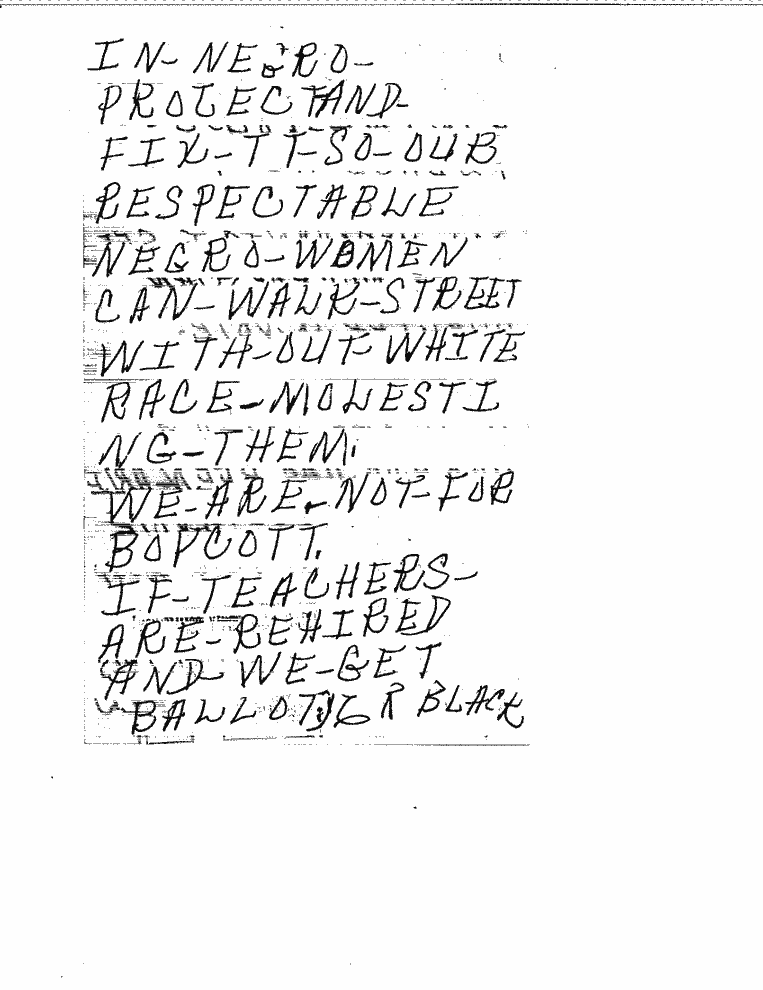 IN-NEGRO-
PROTECT AND-
FIX-IT-SO-OUR
RESPECTABLE
NEGRO-WOMEN
CAN-WALK-STREET
WITH-OUT-WHITE
RACE-MOLESTI
NG-THEM.
WE-ARE-NOT-FOR
BOYCOTT.
IF-TEACHERS-
ARE-REHIRED
AND-WE-GET
BALLOT BLACK